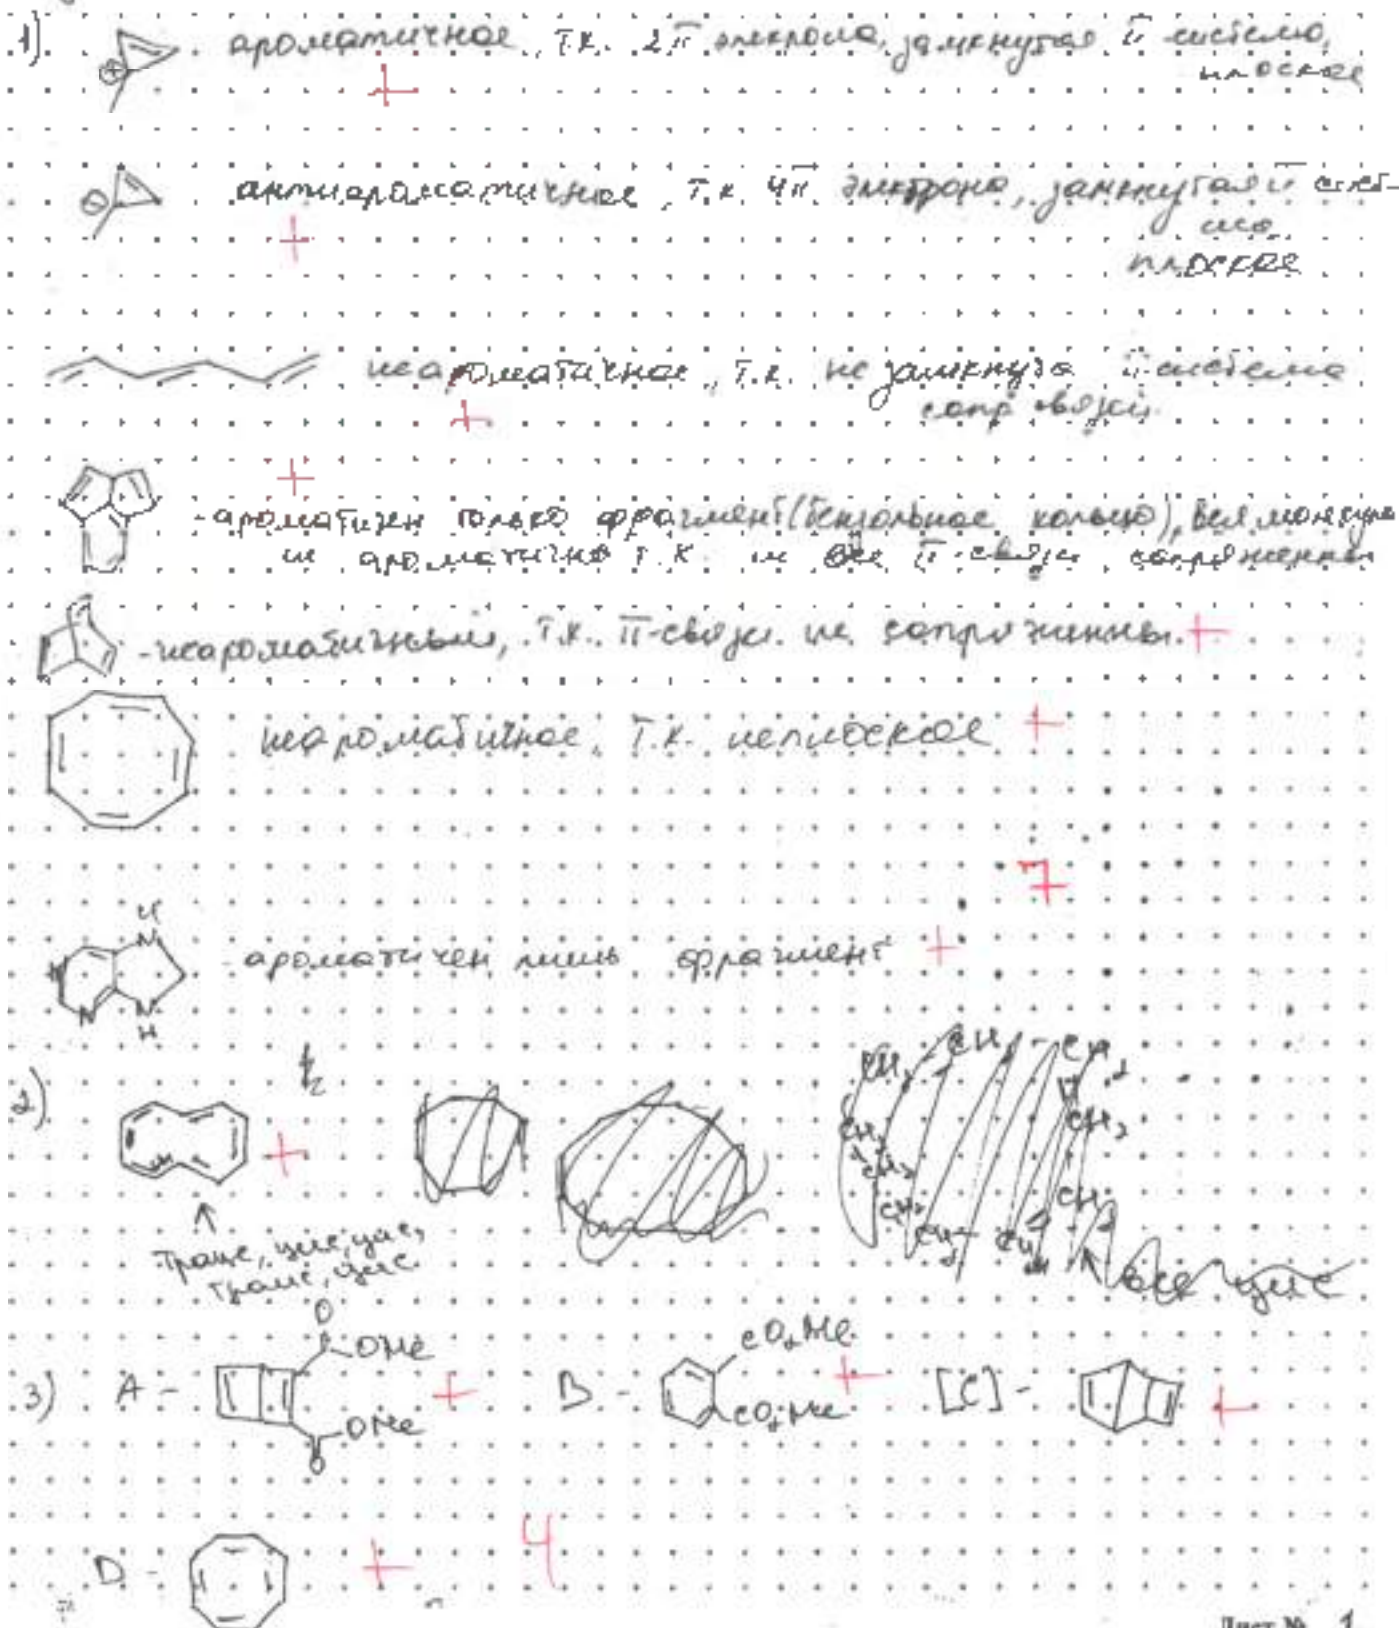 1).
ароматичное, т.к. 2π электрона, замкнутая π-система,
плоское
+
⊕
антиароматичное, т.к. 4π электрона, замкнутая π сист-
ема
плоское
⊖
+
неароматичное, т.к. не замкнута π-система
сопр связей.
+
+
-ароматичен только фрагмент (бензольное кольцо), вся молекула
не ароматична т.к. не все π-связи сопряженны
-неароматичный, т.к. π-связи не сопряженны. +
неароматичное, т.к. неплоское +
7
H
N
- ароматичен лишь фрагмент +
N
N
N
H
2)
+
транс, цис, цис,
транс, цис
CH2 - CH2 - CH2
CH2
CH2
CH2
CH2
CH2
все цис
3) A -
O
OMe
OMe
O
+
B -
CO2Me
CO2Me
+
[C] -
+
D -
+
4
Лист № 1